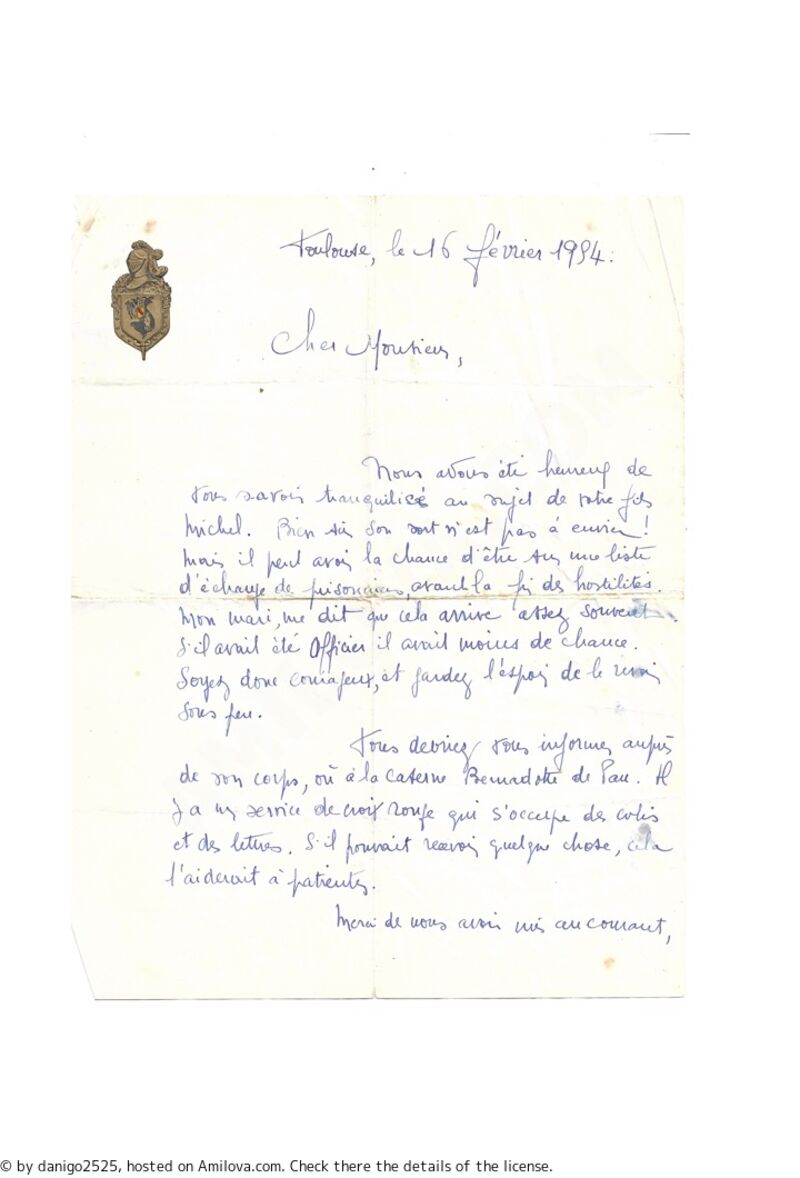 Toulouse, le 16 février 1954.
Cher Monsieur,
Nous avons été heureux de
vous savoir tranquilisé au sujet de votre fils
Michel. Bien sûr son sort n'est pas à envier!
Mais il peut avoir la chance d'être sur une liste
d'échange de prisonniers, avant la fin des hostilités.
Mon mari, me dit que cela arrive assez souvent.
S'il avait été Officier il avait moins de chance.
Soyez donc courageux, et gardez l'espoir de le revoir
sous peu.
Vous devriez vous informer auprès
de son corps, où à la caserne Bernadotte de Pau. Il
y a un service de croix rouge qui s'occupe des colis
et des lettres. S'il pouvait recevoir quelque chose, cela
l'aiderait à patienter.
Merci de nous avoir mis au courant,
© by danigo2525, hosted on Amilova.com. Check there the details of the license.